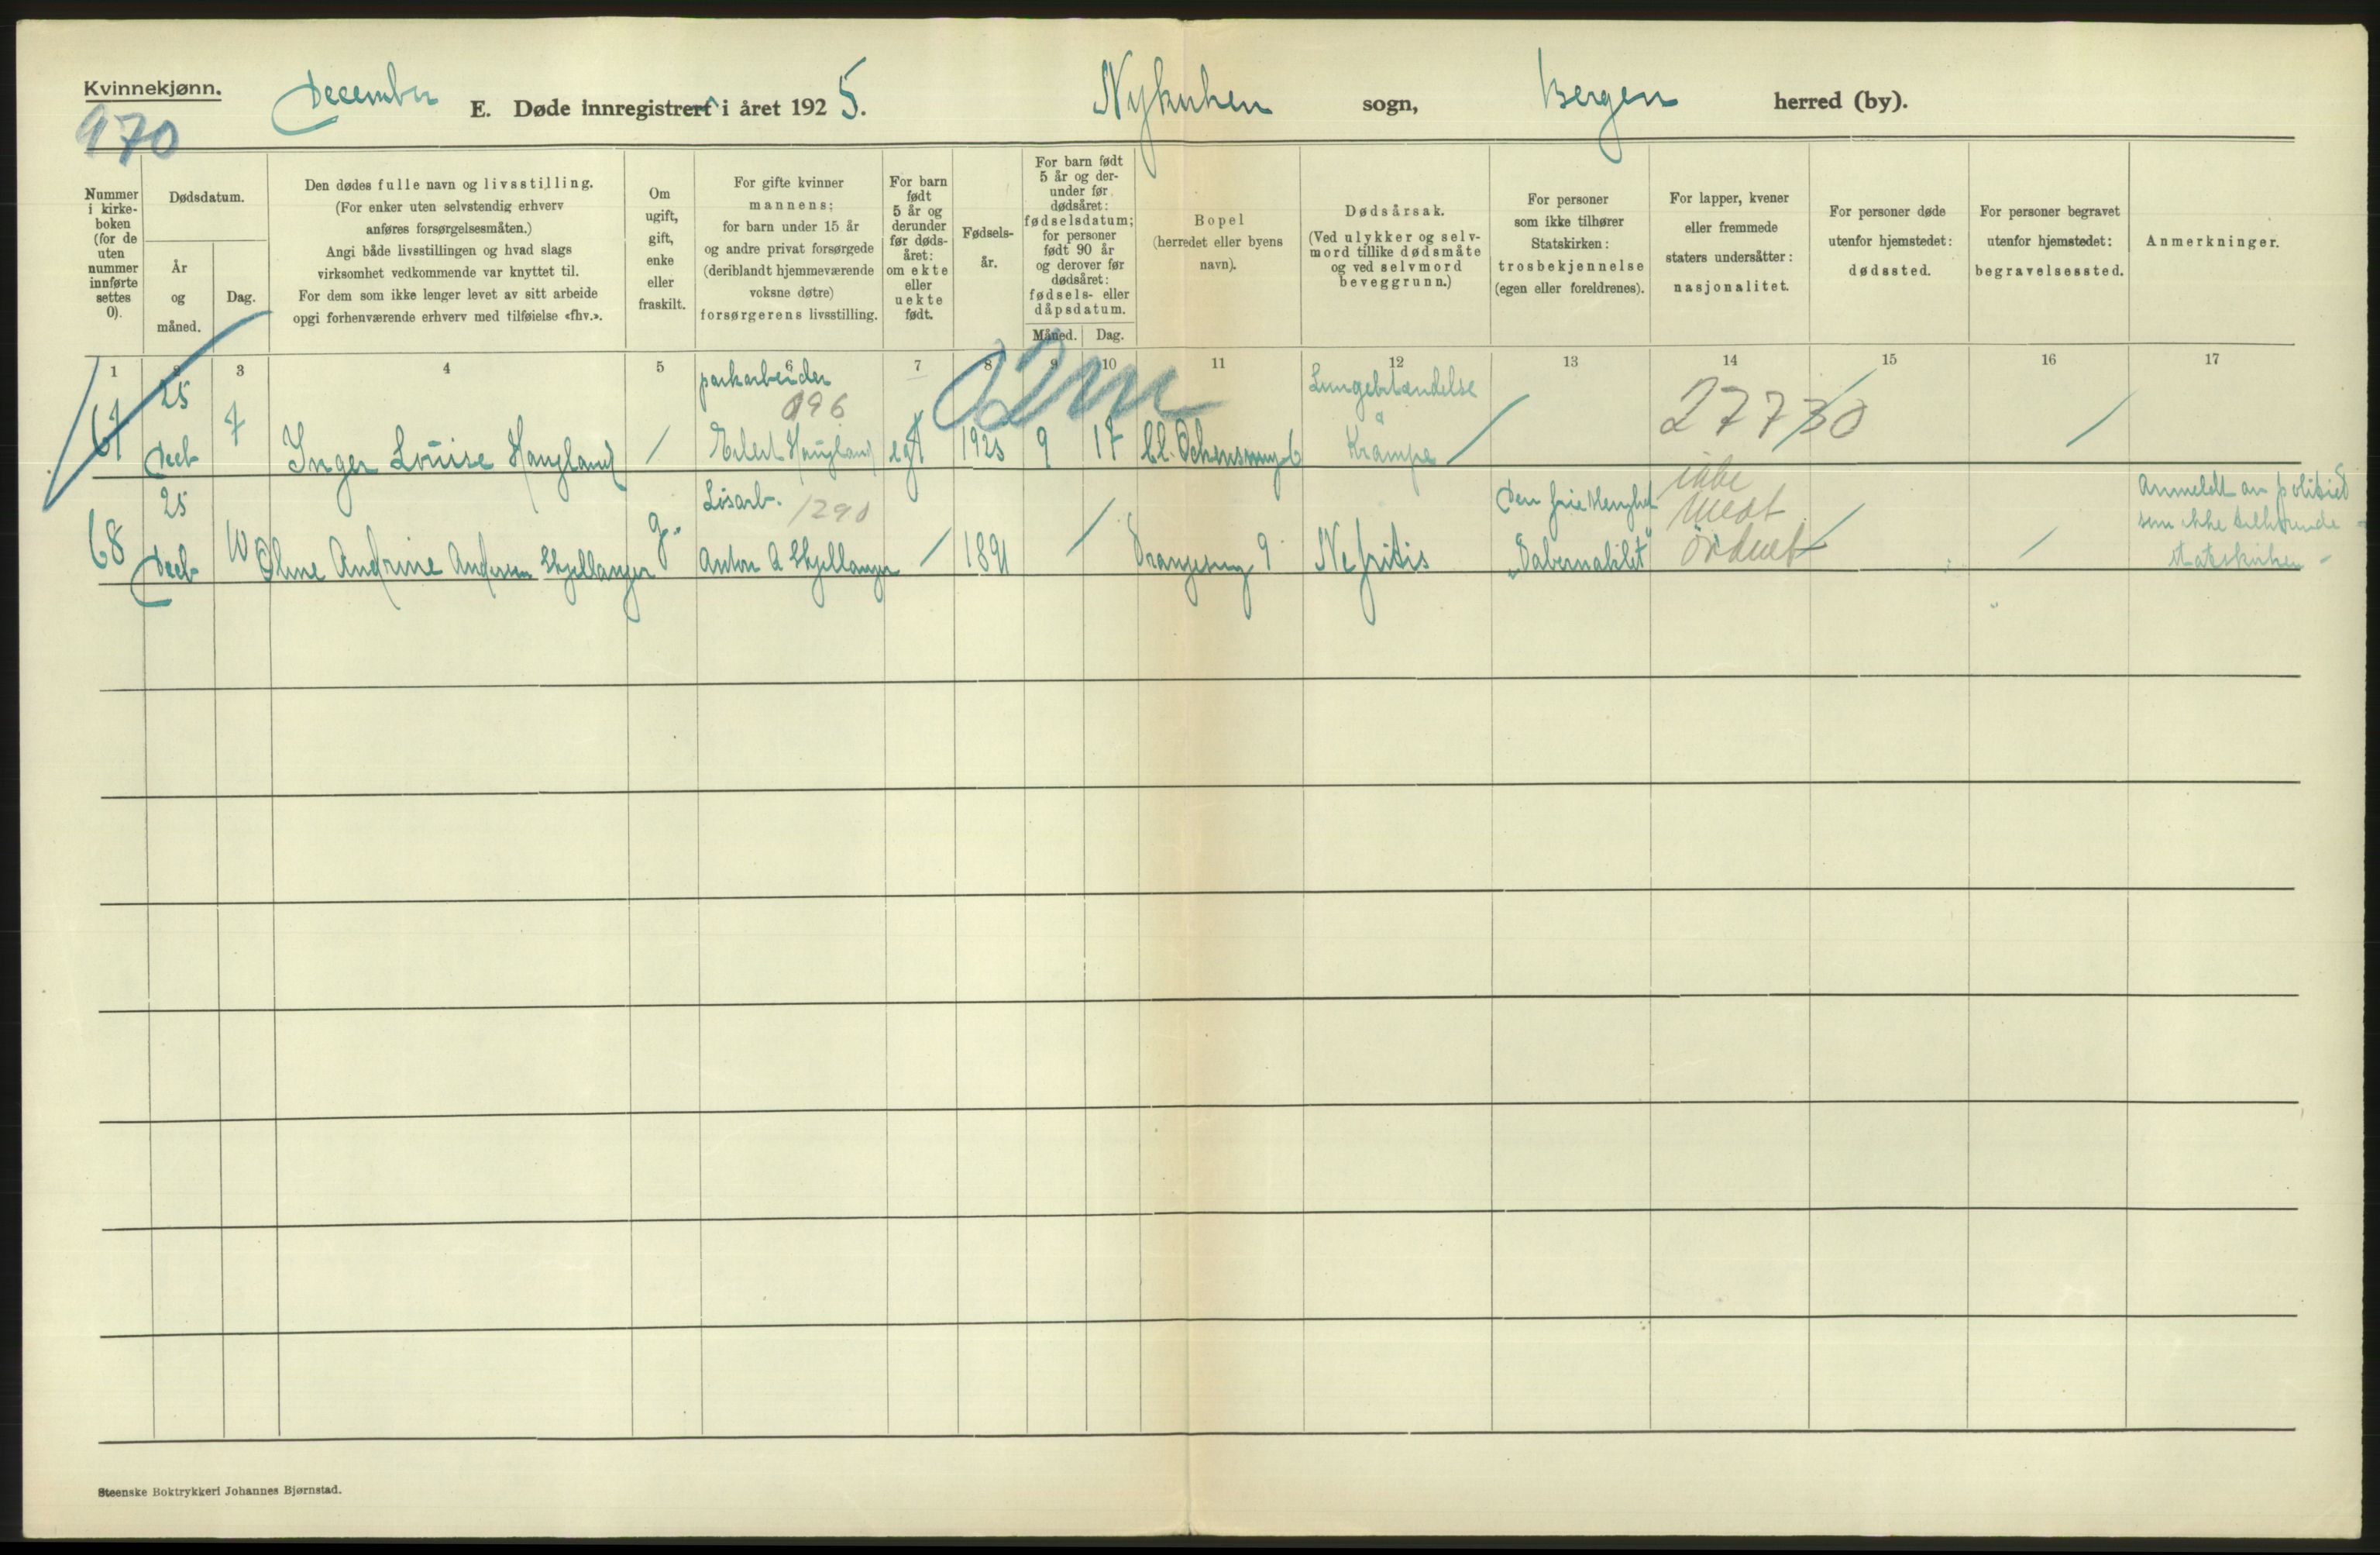 Kvinnekjønn.
December
E. Døde innregistrert i året 1925.
Nykirken sogn,
Bergen herred (by).
970
Nummer i kirke-boken (for de uten nummer innførte settes 0).
Dødsdatum.
År og måned.
Dag.
Den dødes fulle navn og livsstilling.
(For enker uten selvstendig erhverv
anføres forsørgelsesmåten.)
Angi både livsstillingen og hvad slags
virksomhet vedkommende var knyttet til.
For dem som ikke lenger levet av sitt arbeide
opgi forhenværende erhverv med tilføielse «fhv.».
Om
ugift,
gift,
enke
eller
fraskilt.
For gifte kvinner
mannens;
for barn under 15 år
og andre privat forsørgede
(deriblandt hjemmeværende
voksne døtre)
forsørgerens livsstilling.
For barn
født
5 år og
derunder
før døds-
året:
om ekte
eller
uekte
født.
Fødsels-
år.
For barn født
5 år og der-
under før
dødsåret:
fødselsdatum;
for personer
født 90 år
og derover før
dødsåret:
fødsels- eller
dåpsdatum.
Måned. Dag.
Bopel
(herredet eller byens
navn).
Dødsårsak.
(Ved ulykker og selv-
mord tillike dødsmåte
og ved selvmord
beveggrunn.)
For personer
som ikke tilhører
Statskirken:
trosbekjennelse
(egen eller foreldrenes).
For lapper, kvener
eller fremmede
staters undersåtter:
nasjonalitet.
For personer døde
utenfor hjemstedet:
dødssted.
For personer begravet
utenfor hjemstedet:
begravelsessted.
Anmerkninger.
1 2 3 4 5 6 7 8 9 10 11 12 13 14 15 16 17
25 parkarbeider 02m Lungebetændelse
096 & 27730
67 Decb 7 Inger Louise Haugland / Haugland egt 1925 9 17 6 Krampe / /
25 Løsarb. 1290 Den frie Menighet ikke Anmeldt av politiet
mest som ikke tilhørende
68 Decb 10 Oline Andrine Andersen Skjellanger g. Anton A Skjellanger / 1891 / 9 Nefritis „Tabernaklet" ordnet / /
statskirken -
Steenske Boktrykkeri Johannes Bjørnstad.